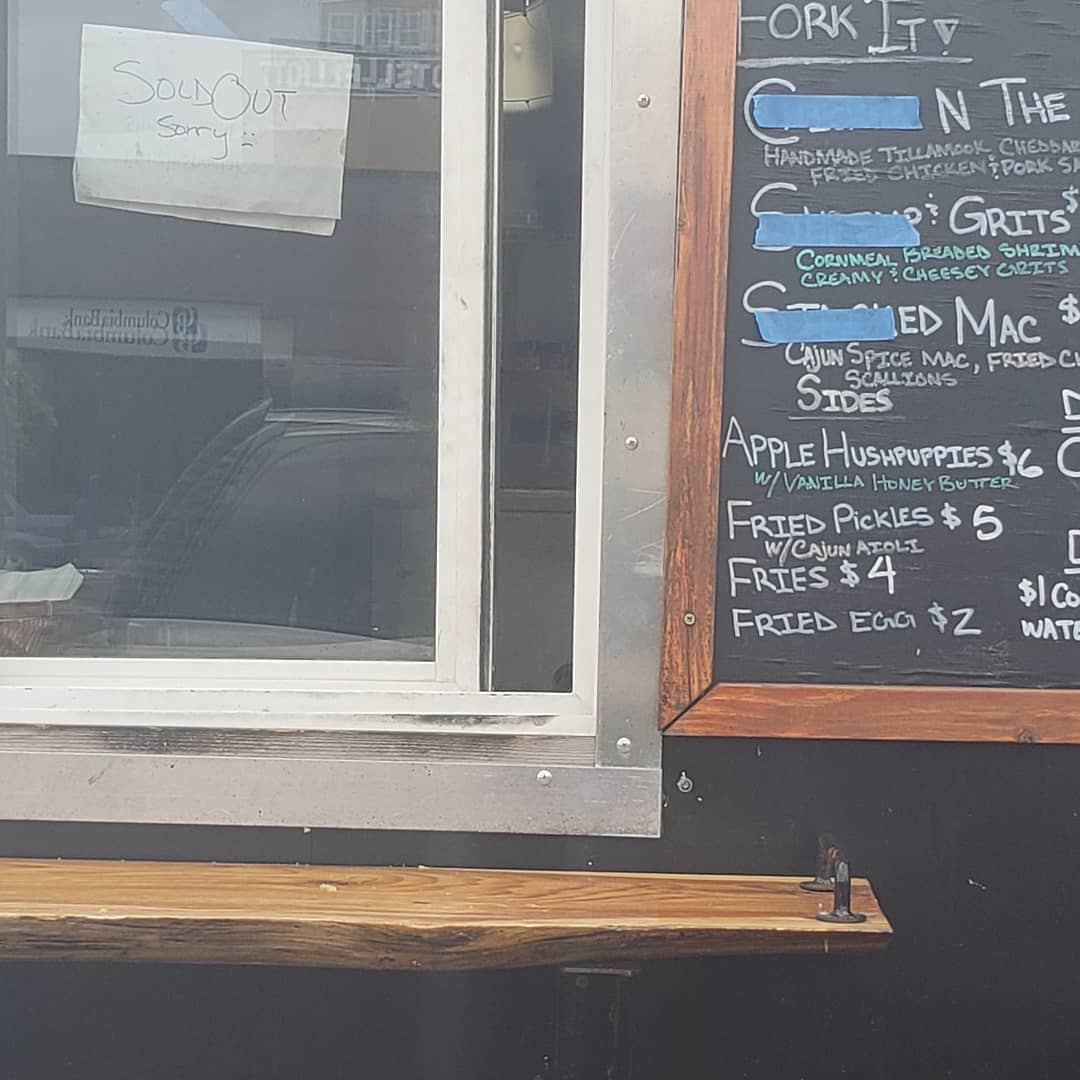 SOLD OUT
Sorry
ColumbiaBank
ColumbiaBank
FORK IT
N THE
HANDMADE TILLAMOOK CHEDDAR
FRIED CHICKEN & PORK SA
& GRITS $
CORNMEAL BREADED SHRIM
CREAMY & CHEESEY GRITS
ED MAC $
CAJUN SPICE MAC, FRIED
SCALLIONS
SIDES
APPLE HUSHPUPPIES $6
W/VANILLA HONEY BUTTER
FRIED PICKLES $5
W/CAJUN AIOLI
FRIES $4
FRIED EGG $2
$1 CO
WATE